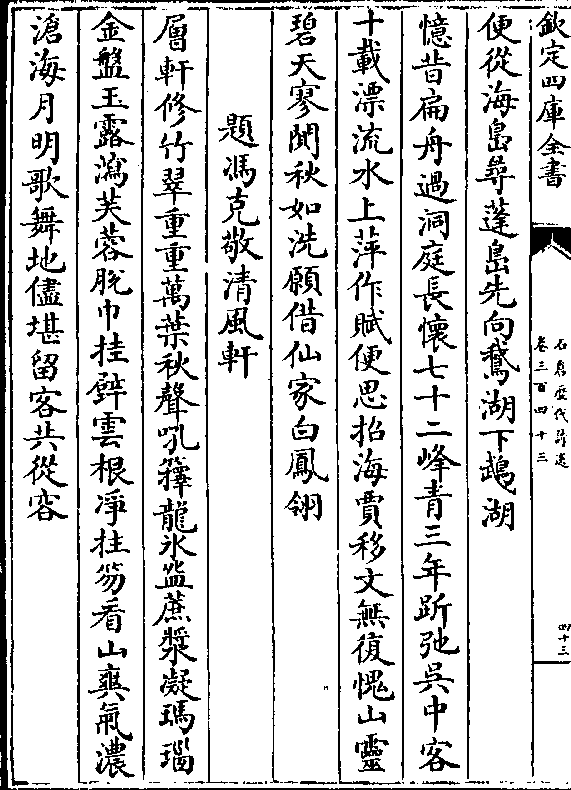 欽定四庫全書
石倉歷代詩選
卷三百四十三
四十三
便從海島尋蓬島先向鵝湖下鷀湖
憶昔扁舟過洞庭長懷七十二峰青三年跅弛吳中客
十載漂流水上萍作賦便思招海賈移文無復愧山靈
碧天寥闃秋如洗願借仙家白鳳翎
題馮克敬清風軒
層軒修竹翠重重萬葉秋聲吼籜龍氷盌蔗漿凝瑪瑙
金盤玉露瀉芙蓉脫巾挂壁雲根凈拄笏看山爽氣濃
滄海月明歌舞地儘堪留客共從容